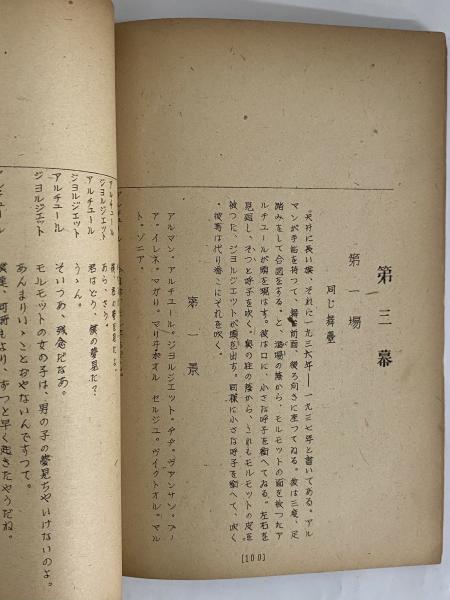 第三幕
第一場
同じ舞臺
天井に長い旗、それに一九三六年──一九三七年と書いてある。アル
マンが手帖を持つて、舞臺前面、後ろ向きに座つてゐる。彼は三度、足
踏みをして合図をする。と、酒場の蔭から、モルモットの面を被つたア
ルチュールが頭を現はす。彼は口に、小さな呼子を銜へてゐる。左右を
見廻し、そつと呼子を吹く。奥の柱の蔭から、これもモルモットの皮を
被つた、ジョルジェットが頭を出す。同様に小さな呼子を銜へて、吹く
彼等は代り番こにそれを吹く。
第一景
アルマン。アルチュール。ジョルジェット。チヂ。ヴァンサン。フ
イレネ。マガリ。マリ セルジュ。ヴィクトオル。マル
ト。ゾニア。
[100]
アルチュール
ジョルジェット
アルチュール
ジョルジェット
アルチュール
ジョルジェット
アルチュール
あら、さう。
君はどう、僕の夢見た?
うゝん。
そいつあ、残念だなあ。
モルモットの女の子は、男の子の夢見ちやいけないのよ。
あんまりいゝことおやないんですつて。
僕は、何時もより、ずつと早く起きたやうだね。